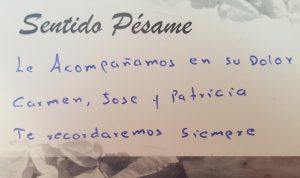 Sentido Pésame
Le Acompañamos en su Dolor
Carmen, Jose y Patricia
Te recordaremos siempre